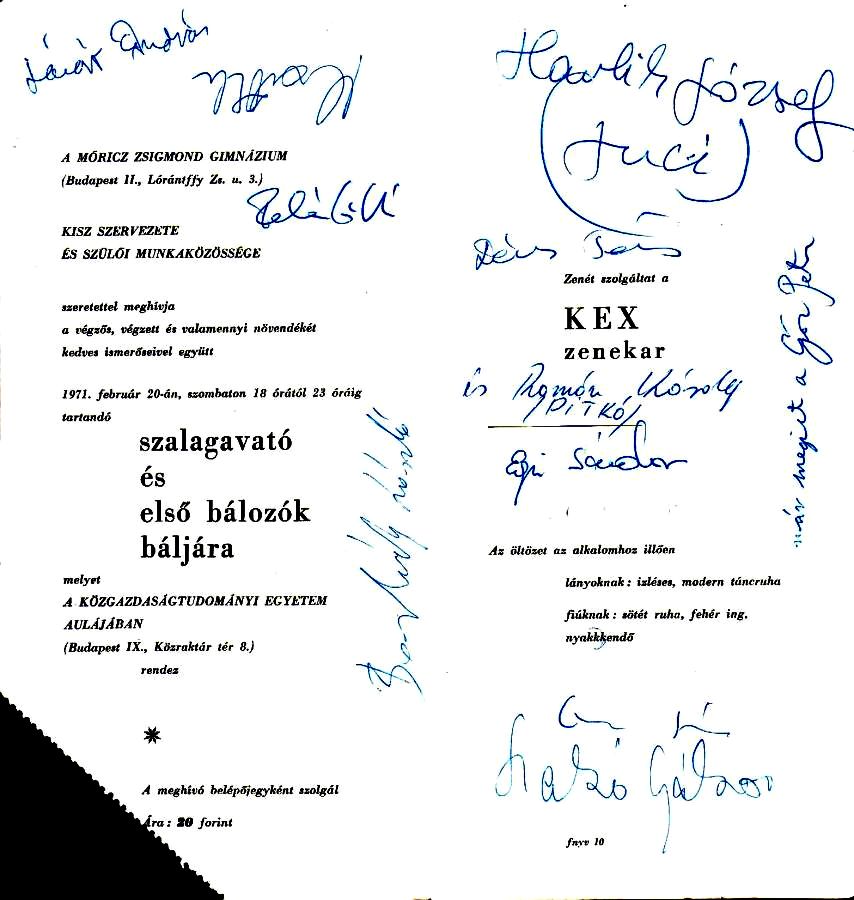 Havlik József
(Tuci)
A MÓRICZ ZSIGMOND GIMNÁZIUM
(Budapest II., Lórántffy Zs. u. 3.)
KISZ SZERVEZETE
ÉS SZÜLŐI MUNKAKÖZÖSSÉGE
szeretettel meghívja
a végzős, végzett és valamennyi növendékét
kedves ismerőseivel együtt
1971. február 20-án, szombaton 18 órától 23 óráig
tartandó
szalagavató
és
első bálozók
báljára
melyet
A KÖZGAZDASÁGTUDOMÁNYI EGYETEM
AULÁJÁBAN
(Budapest IX., Közraktár tér 8.)
rendez
A meghívó belépőjegyként szolgál
Ára: 20 forint
Zenét szolgáltat a
KEX
zenekar
és Román Károly
(PITKÓ)
Egri Sándor
már megint a Góz Peti
Az öltözet az alkalomhoz illően
lányoknak: izléses, modern táncruha
fiúknak: sötét ruha, fehér ing,
nyakkkendő
Szakó Gábor
fnyv 10